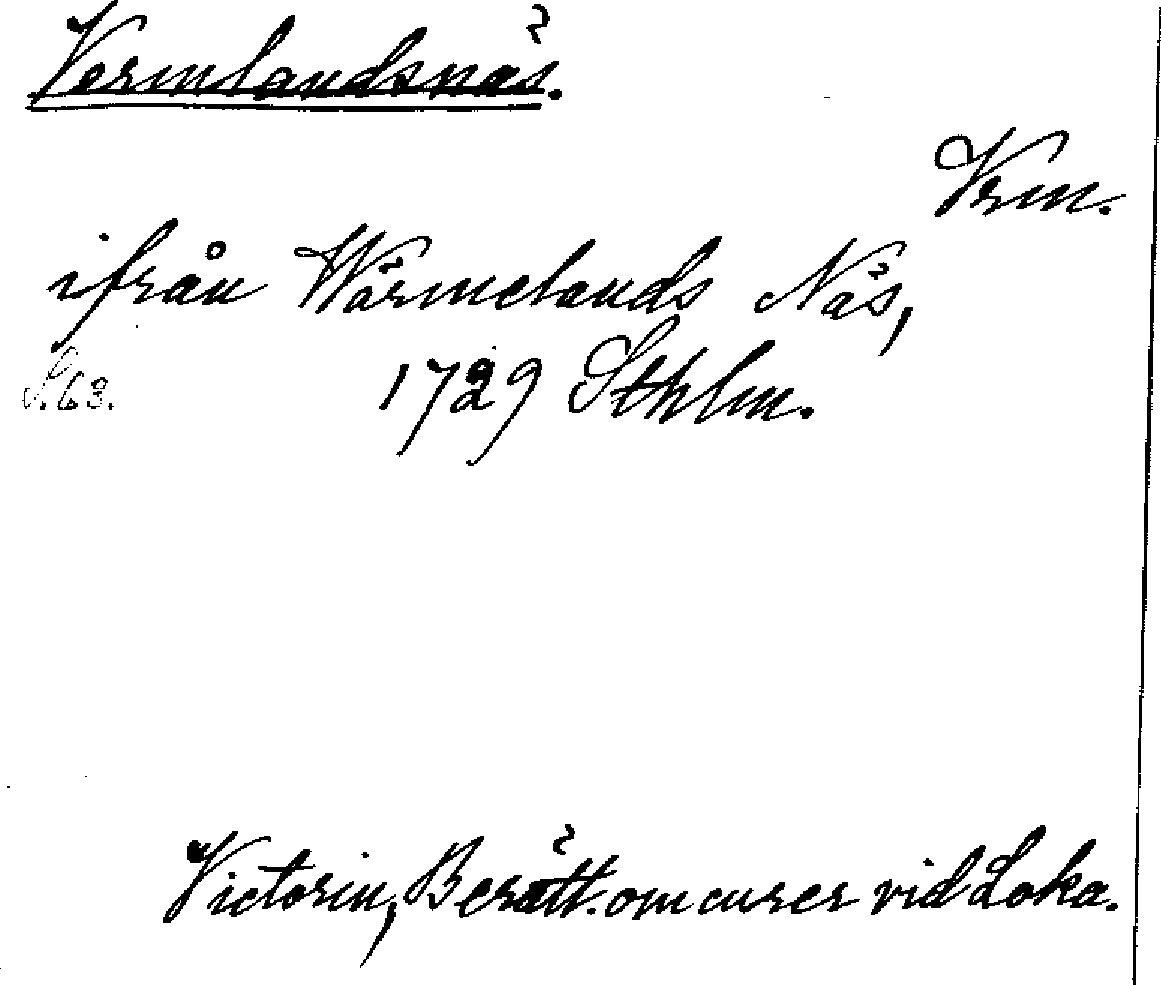 Vermlandsnäs.
Vrm.
ifrån Wärmelands Näs,
S. 63. 1729 Sthlm.
Victorin, Berätt. om curer vid Loka.